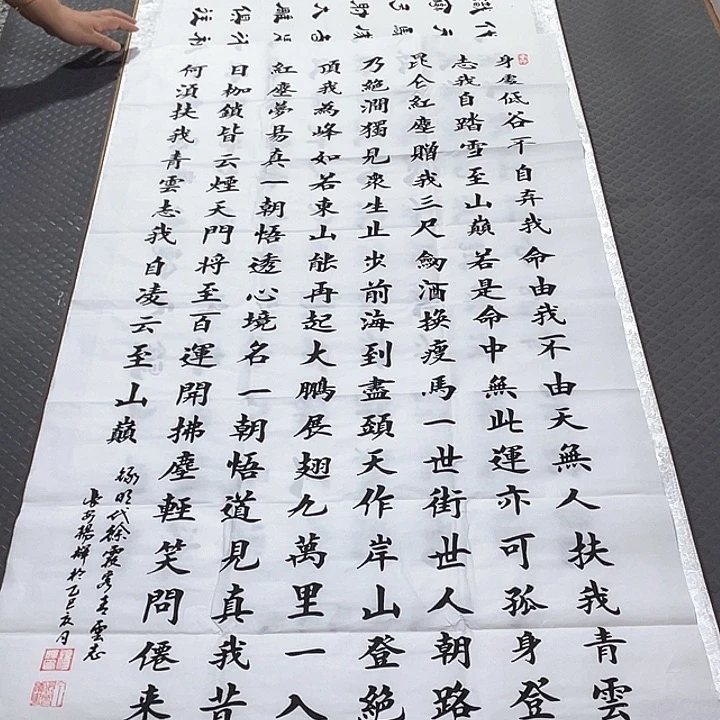 身處低谷不自弃我命由我不由天無人扶我青雲
志我自踏雪至山巔若是命中無此運亦可孤身登
昆仑紅塵贈我三尺劒酒换瘦馬一世街世人朝路
乃絕澗獨見衆生止步前海到盡頭天作岸山登絕
頂我為峰如若東山能再起大鵬展翅九萬里一入
紅塵夢易真一朝悟透心境名一朝悟道見真我昔
日枷鎖皆云煙天門將至百運開拂塵輕笑問僊来
何須扶我青雲志我自凌云至山巔
録明代徐霞客青雲志
長安楊輝於乙巳夏月